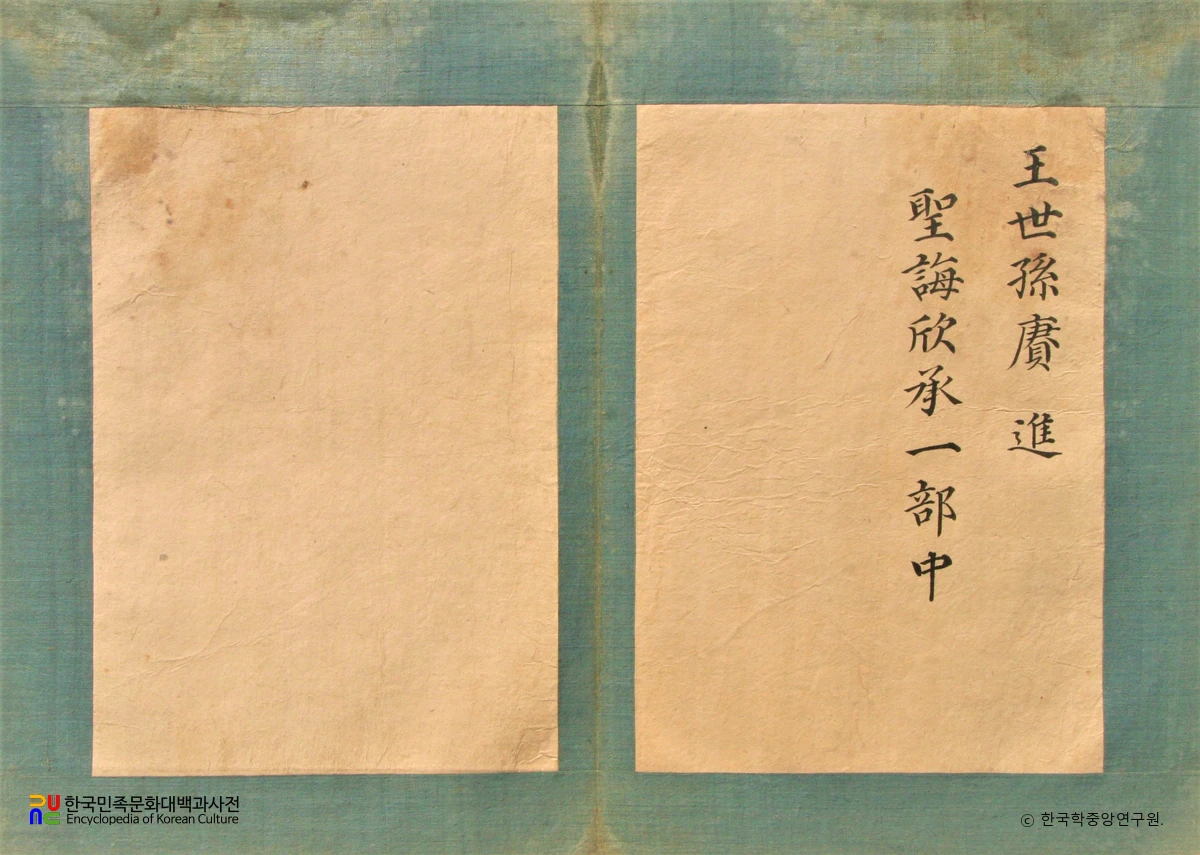 王世孫賡 進
聖誨欣承一部中
한국민족문화대백과사전
Encyclopedia of Korean Culture
ⓒ 한국학중앙연구원.